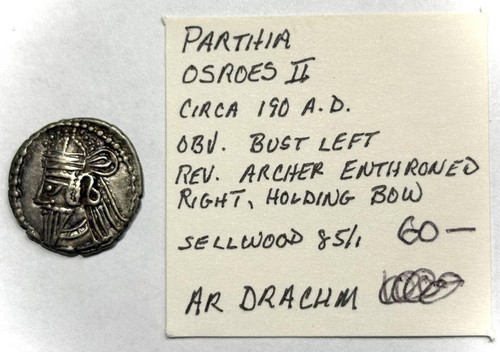 PARTHIA
OSROES II
CIRCA 190 A.D.
OBV. BUST LEFT
REV. ARCHER ENTHRONED
RIGHT, HOLDING BOW
SELLWOOD 85/1 60—
AR DRACHM